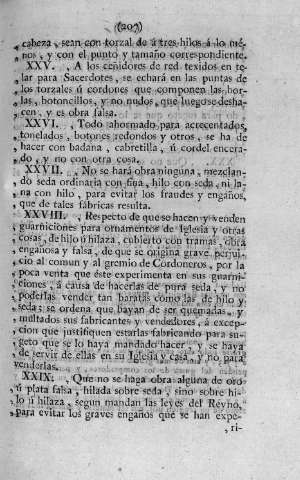 (207)
„ cabeza, sean con torzal de á tres hilos á lo mé-
„ nos, y con el punto y tamaño correspondiente.
„ XXV. „ A los ceñidores de red texidos en te-
„ lar para Sacerdotes, se echará en las puntas de
„ los torzales ú cordones que componen las bor-
„ las, botoncillos, y no nudos, que luego se desha-
„ cen, y es obra falsa.
„ XXVI. „ Todo ahormado para acrecentados,
„ tonelados, botones redondos y otros, se ha de
„ hacer con badana, cabretilla, ú cordel encera-
„ do, y no con otra cosa.
„ XXVII. „ No se hará obra ninguna, mezclan-
„ do seda ordinaria con fina, hilo con seda, ni la-
„ na con hilo, para evitar los fraudes y engaños,
„ que de tales fábricas resulta.
„ XXVIII. „ Respecto de que se hacen y venden
„ guarniciones para ornamentos de Iglesia y otras
„ cosas, de hilo ú hilaza, cubierto con tramas, obra
„ engañosa y falsa, de que se origina grave perjui-
„ cio al comun y al gremio de Cordoneros, por la
„ poca venta que éste experimenta en sus guarni-
„ ciones, á causa de hacerlas de pura seda, y no
„ poderlas vender tan baratas como las de hilo y
„ seda; se ordena que hayan de ser quemadas, y
„ multados sus fabricantes y vendedores, á excep-
„ cion que justifiquen estarlas fabricando para su-
„ geto que se lo haya mandado hacer, y se haya
„ de servir de ellas en su Iglesia y casa, y no para
„ venderlas.
„ XXIX. „ Que no se haga obra alguna de oro
„ ú plata falsa, hilada sobre seda, sino sobre hi-
„ lo ú hilaza, segun mandan las leyes del Reyno,
„ para evitar los graves engaños que se han expe-
„ ri-